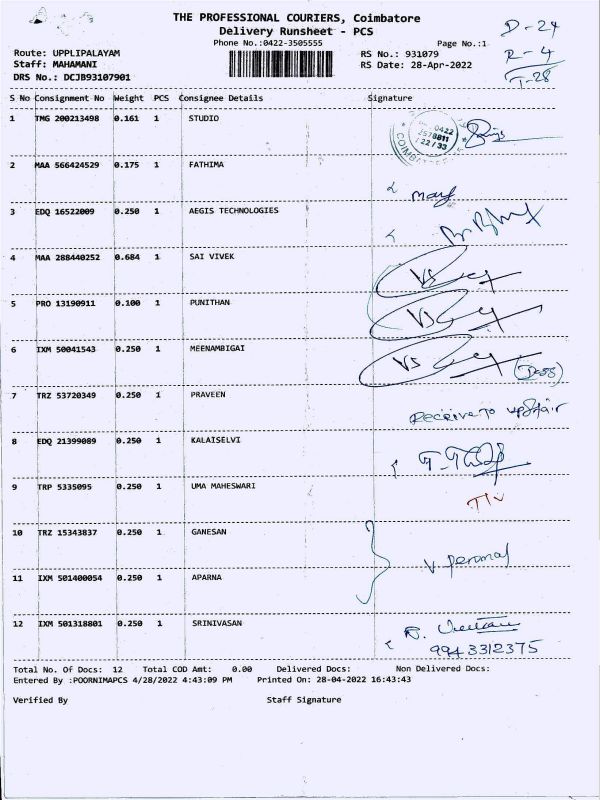 THE PROFESSIONAL COURIERS, Coimbatore
Delivery Runsheet - PCS
Phone No.:0422-3505555
Page No.:1
D - 24
R - 4
T-28
Route: UPPLIPALAYAM
Staff: MAHAMANI
DRS No.: DCJB93107901
RS No.: 931079
RS Date: 28-Apr-2022
S No Consignment No Weight PCS Consignee Details Signature
1 TMG 200213498 0.161 1 STUDIO
2 MAA 566424529 0.175 1 FATHIMA
3 EDQ 16522009 0.250 1 AEGIS TECHNOLOGIES
4 MAA 288440252 0.684 1 SAI VIVEK VS
5 PRO 13190911 0.100 1 PUNITHAN VS
6 IXM 50041543 0.250 1 MEENAMBIGAI VS
7 TRZ 53720349 0.250 1 PRAVEEN Receive To upstair
8 EDQ 21399089 0.250 1 KALAISELVI
9 TRP 5335095 0.250 1 UMA MAHESWARI
10 TRZ 15343837 0.250 1 GANESAN
V Perumal
11 IXM 501400054 0.250 1 APARNA
12 IXM 501318801 0.250 1 SRINIVASAN
9943312375
Total No. Of Docs: 12 Total COD Amt: 0.00 Delivered Docs: Non Delivered Docs:
Entered By :POORNIMAPCS 4/28/2022 4:43:09 PM Printed On: 28-04-2022 16:43:43
Verified By Staff Signature